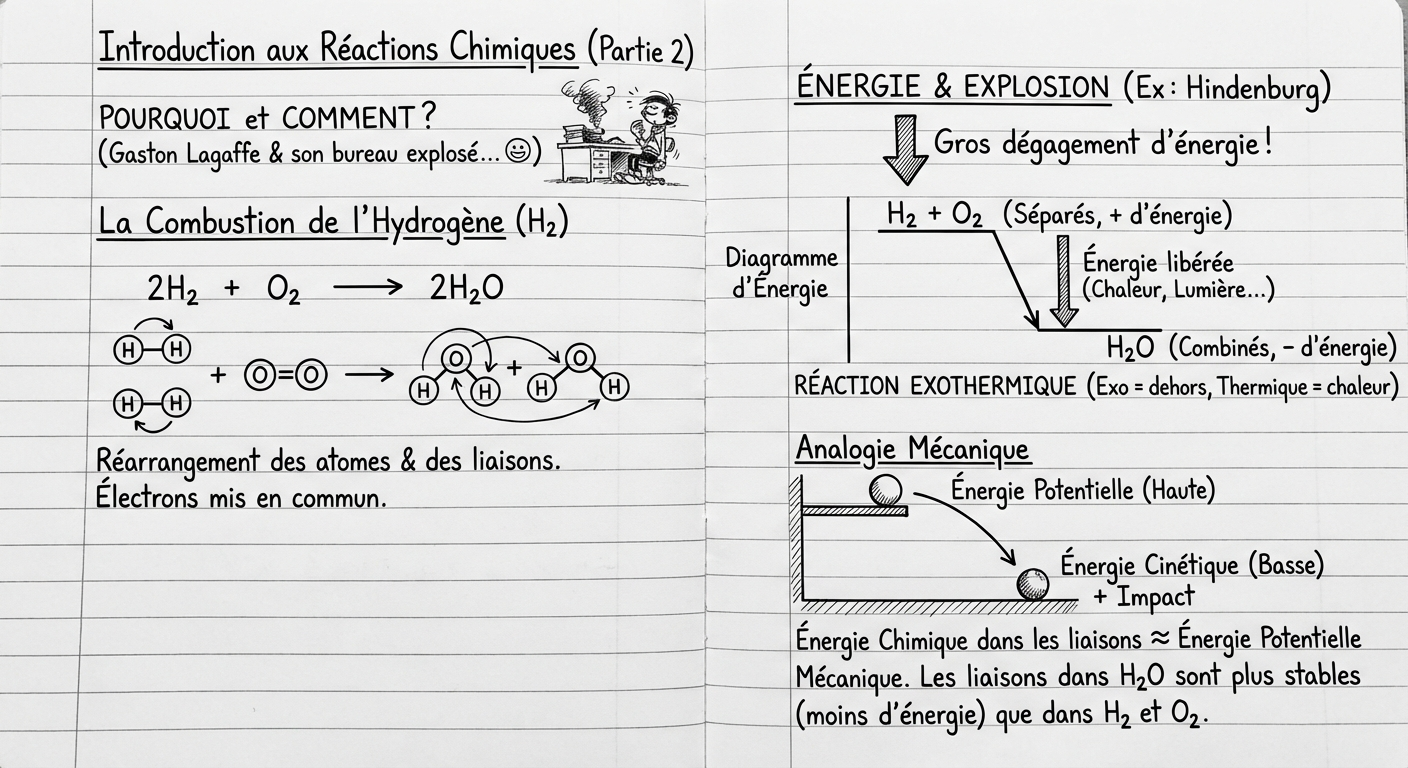 Introduction aux Réactions Chimiques (Partie 2)
POURQUOI et COMMENT ?
(Gaston Lagaffe & son bureau explosé... 😀)
La Combustion de l'Hydrogène (H₂)
2H₂ + O₂ → 2H₂O
H–H
H–H
+ O=O →
O
H H
+
O
H H
Réarrangement des atomes & des liaisons.
Électrons mis en commun.
ÉNERGIE & EXPLOSION (Ex : Hindenburg)
Gros dégagement d'énergie !
Diagramme
d'Énergie
H₂ + O₂ (Séparés, + d'énergie)
Énergie libérée
(Chaleur, Lumière...)
H₂O (Combinés, – d'énergie)
RÉACTION EXOTHERMIQUE (Exo = dehors, Thermique = chaleur)
Analogie Mécanique
Énergie Potentielle (Haute)
Énergie Cinétique (Basse)
+ Impact
Énergie Chimique dans les liaisons ≈ Énergie Potentielle
Mécanique. Les liaisons dans H₂O sont plus stables
(moins d'énergie) que dans H₂ et O₂.